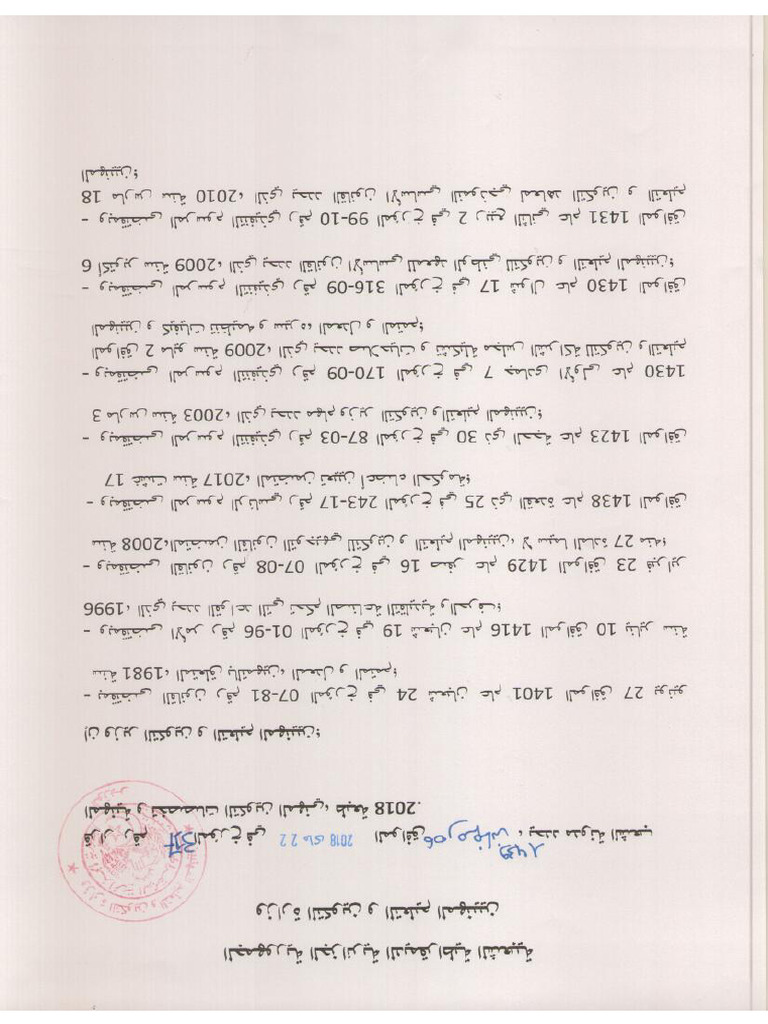 الجمهورية الجزائرية الديمقراطية الشعبية
وزارة التكوين و التعليم المهنيين
قرار رقم 317 المؤرخ في 22 ماي 2018 الموافق 06 رمضان 1439، يحدد مدونة الشعب
المهنية و تخصصات التكوين المهني، طبعة 2018.
إن وزير التكوين و التعليم المهنيين؛
- وبمقتضى القانون رقم 81-07 المؤرخ في 24 شعبان عام 1401 الموافق 27 يونيو
سنة 1981، المتعلق بالتمهين، المعدل و المتمم؛
- وبمقتضى الأمر رقم 96-01 المؤرخ في 19 شعبان عام 1416 الموافق 10 يناير سنة
1996، الذي يحدد القواعد التي تحكم الصناعة التقليدية والحرف؛
- وبمقتضى القانون رقم 08-07 المؤرخ في 16 صفر عام 1429 الموافق 23 فبراير
سنة 2008،المتضمن القانون التوجيهي للتكوين و التعليم المهنيين، لا سيما المادة 27 منه؛
- وبمقتضى المرسوم الرئاسي رقم 17-243 المؤرخ في 25 ذي القعدة عام 1438 الموافق
17 غشت سنة 2017، المتضمن تعيين أعضاء الحكومة؛
- وبمقتضى المرسوم التنفيذي رقم 03-87 المؤرخ في 30 ذي الحجة عام 1423 الموافق
3 مارس سنة 2003، الذي يحدد مهام وزير التكوين والتعليم المهنيين؛
- وبمقتضى المرسوم التنفيذي رقم 09-170 المؤرخ في 7 جمادى الأولى عام 1430
الموافق 2 مايو سنة 2009، الذي يحدد صلاحيات و تشكيلة مجلس الشراكة للتكوين والتعليم
المهنيين و كيفيات تنظيمه و سيره، المعدل و المتمم؛
- وبمقتضى المرسوم التنفيذي رقم 09-316 المؤرخ في 17 شوال عام 1430 الموافق
6 أكتوبر سنة 2009، الذي يحدد القانون الأساسي للمعهد الوطني للتكوين و التعليم المهنيين؛
- وبمقتضى المرسوم التنفيذي رقم 10-99 المؤرخ في 2 ربيع الثاني عام 1431 الموافق
18 مارس سنة 2010، الذي يحدد القانون الأساسي النموذجي لمعاهد التكوين و التعليم
المهنيين؛